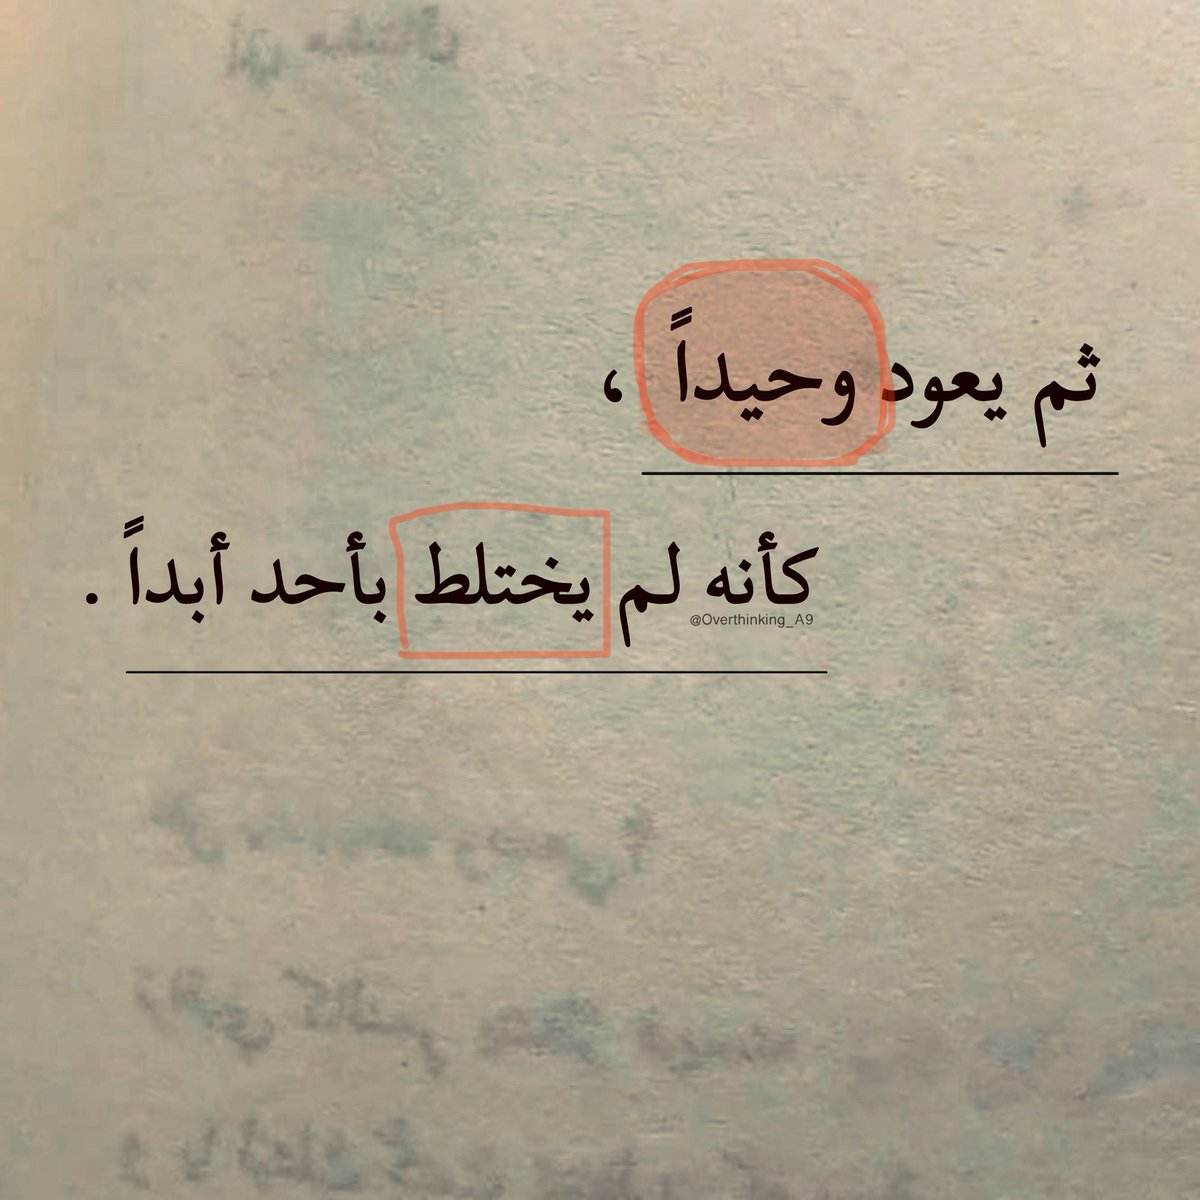 ثم يعود وحيداً ،
كأنه لم يختلط بأحد أبداً .
@Overthinking_A9